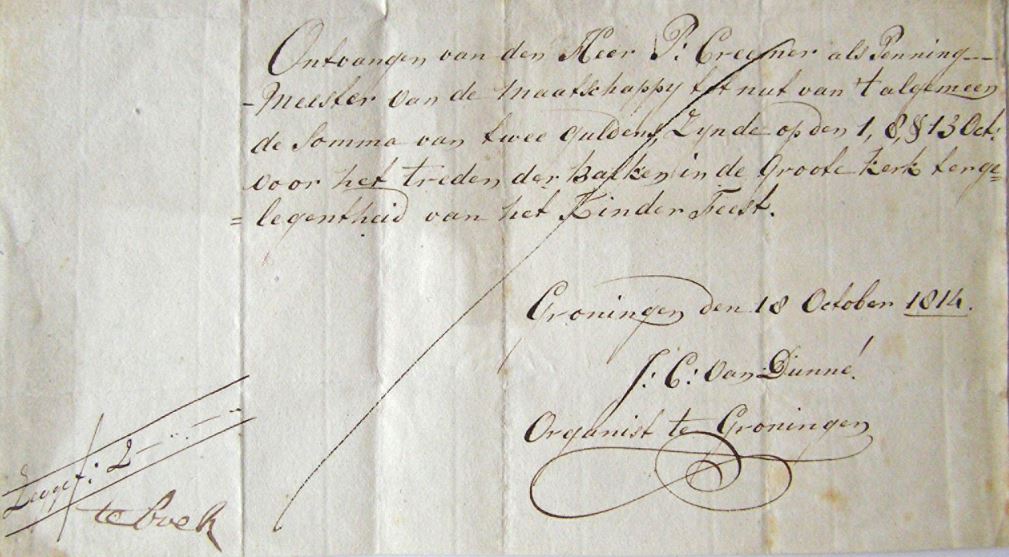 Ontvangen van den Heer P: Creemer als Penning--
-Meester van de Maatschappy tot nut van 't algemeen
de Somma van twee guldens, Zynde op den 1, 8, & 13 Oct:
voor het treden der Balken in de Groote kerk terge=
=legentheid van het Kinder Feest.
Groningen den 18 October 1814.
J: C: van Dunné.
Organist te Groningen
Zegge f: 2 - " - "
te boek